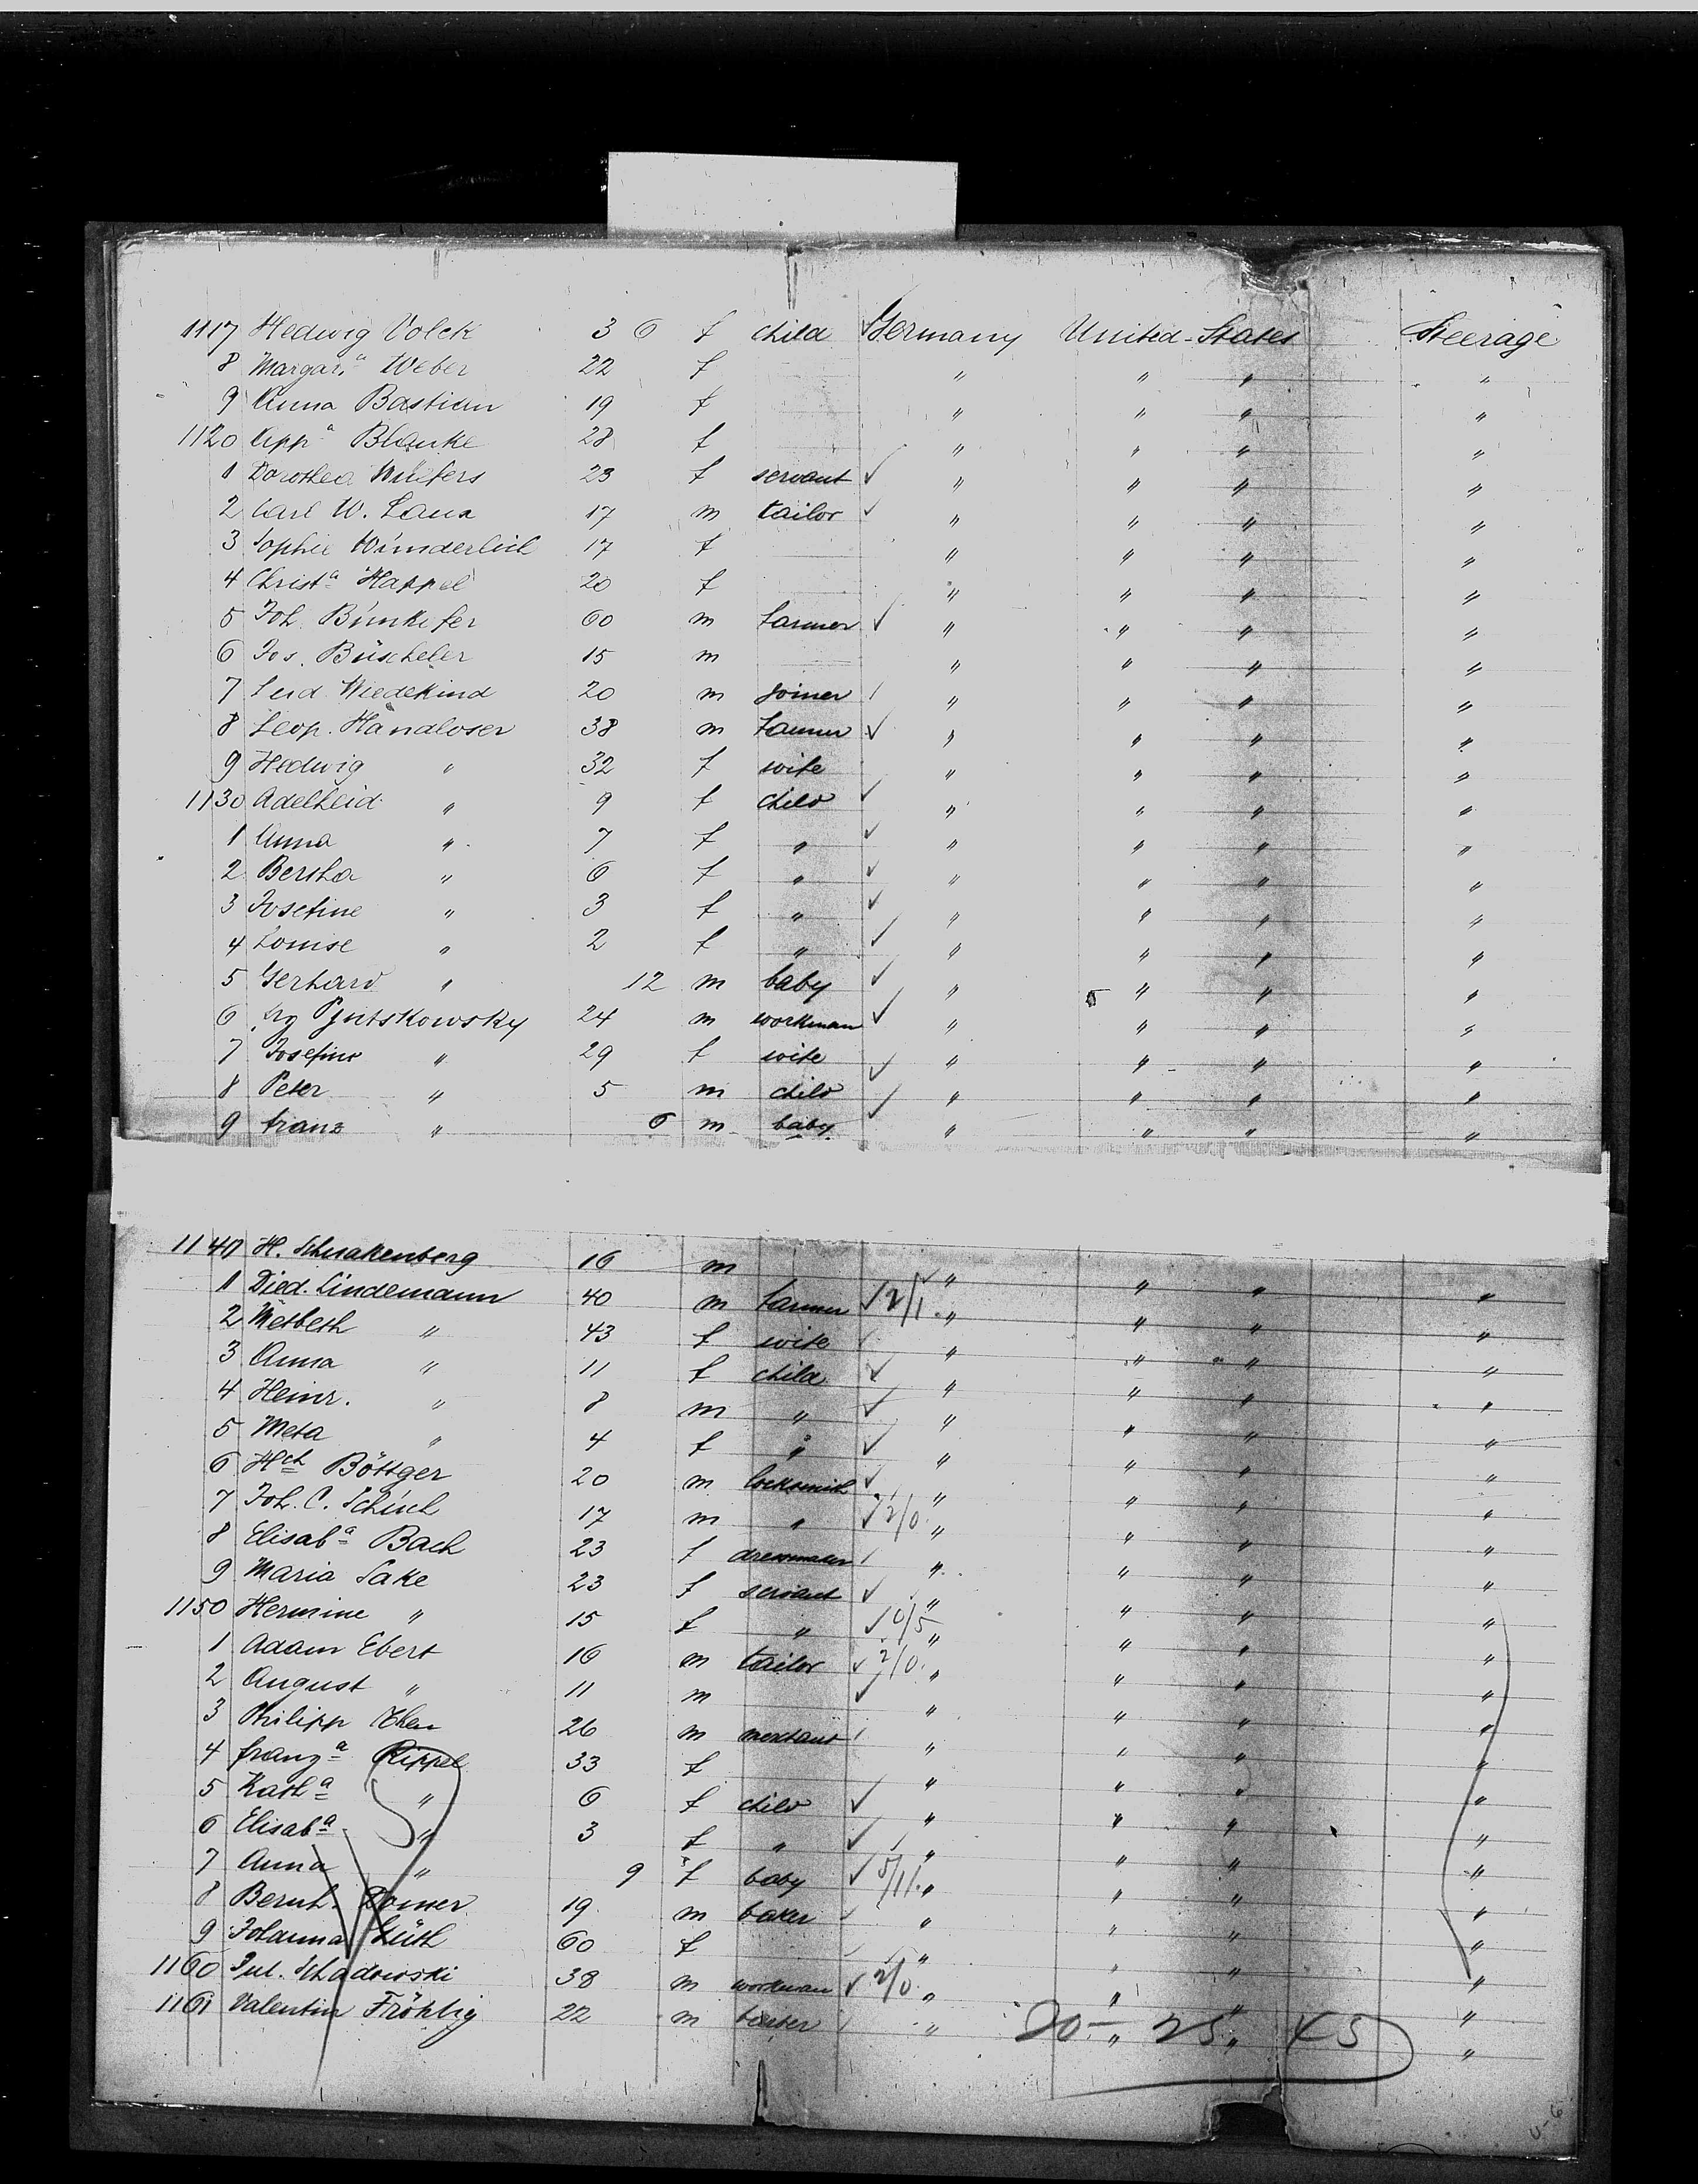 1117 Hedwig Volck 3 6 f child Germany United-States Steerage
8 Margar.a Weber 22 f " " " "
9 Anna Bastian 19 f " " " "
1120 Blanke 28 f " " " "
1 Dorothea 23 f servant " " " "
2 Carl W. Laux 17 m tailor " " " "
3 Sophie Wunderlich 17 f " " " "
4 Christa Happel 20 f " " " "
5 Joh. 60 m farmer " " " "
6 Jos. Büscheler 15 m " " " "
7 Wiedekind 20 m joiner " " " "
8 Leop. Handloser 38 m farmer " " " "
9 Hedwig " 32 f wife " " " "
1130 Adelheid " 9 f child " " " "
1 Anna " 7 f " " " " "
2 Bertha " 6 f " " " " "
3 Josefine " 3 f " " " " "
4 Louise " 2 f " " " " "
5 Gerhard " 12 m baby " " " "
6 24 m workman " " " "
7 Josefine " 29 f wife " " " "
8 Peter " 5 m child " " " "
9 Franz " 6 m baby " " " "
1140 H. Schnakenberg 16 m " " " "
1 Died. Lindemann 40 m farmer 2/1 " " " "
2 Metbeth " 43 f wife " " " "
3 Anna " 11 f child " " " "
4 Heinr. " 8 m " " " " "
5 Meta " 4 f " " " " "
6 Hch Böttger 20 m locksmith " " " "
7 Joh. C. Schüch 17 m " 2/0 " " " "
8 Elisaba Bach 23 f dressmaker " " " "
9 Maria Sake 23 f servant " " " "
1150 Hermine " 15 f " 0/5 " " " "
1 Adam Ebert 16 m tailor 2/0 " " " "
2 August " 11 m " " " "
3 Philipp 26 m " " " "
4 Franza Rippel 33 f " " " "
5 Katha " 6 f child " " " "
6 Elisaba " 3 f " " " " "
7 Anna " 9 f baby 5/11 " " " "
8 Bernh. Domer 19 m baker " " " "
9 Johanna Lüth 60 f " " " "
1160 Jul. Schadowski 38 m workman 2/0 " " " "
1161 Valentin Fröhlig 22 m " " " "
20- 25 45